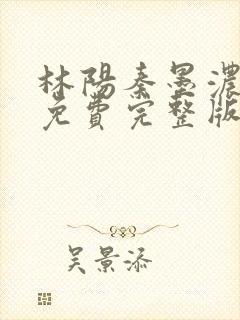 林陽秦墨濃
免費完整版
吴景添